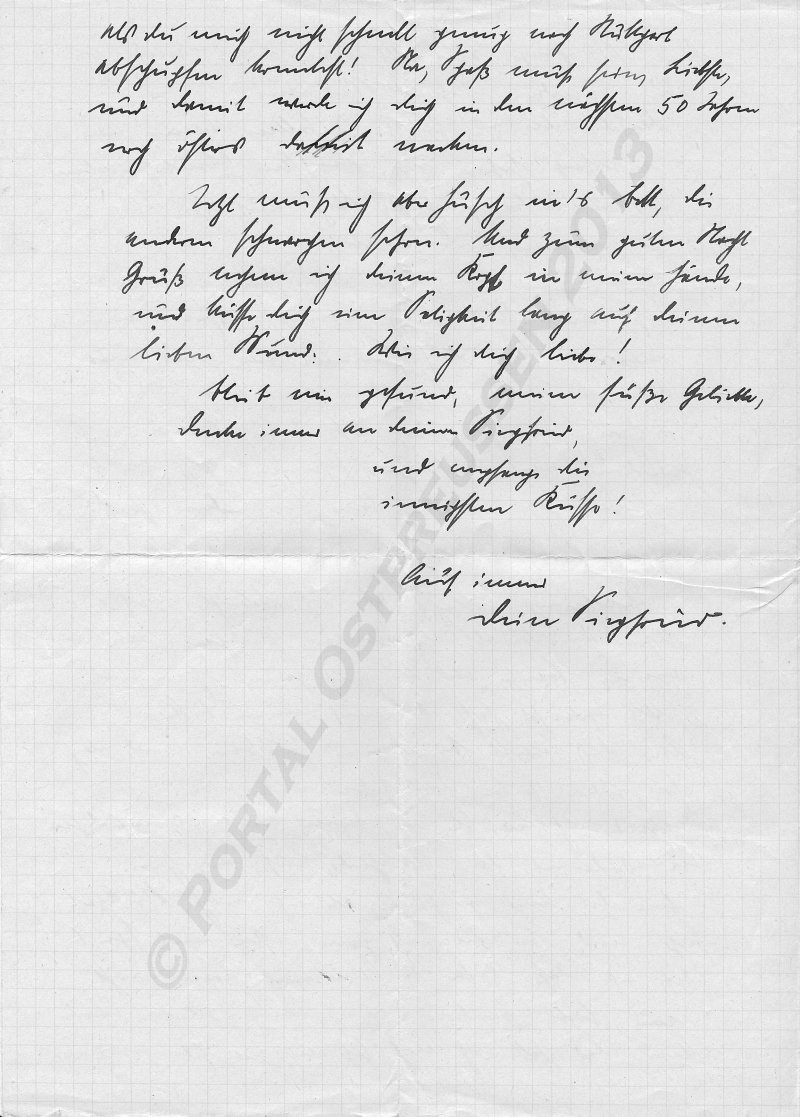 als du mich nicht schnell genug nach Stuttgart
abschupfen konntest! Na, Spaß muß sein, Liebste,
und damit werde ich dich in den nächsten 50 Jahren
noch öfters damit necken.
Jetzt muß ich aber husch in's Bett, die
andern schnarchen schon. Und zum guten Nacht
Gruß nehme ich deinen Kopf in meine Hände,
und küsse dich eine Seligkeit lang auf deinen
lieben Mund. Wie ich dich liebe!
Bleib mir gesund, meine süße Geliebte,
denke immer an deinen Siegfried,
und empfange die
innigsten Küsse!
Auf immer
dein Siegfried.
© PORTAL OSTPREUSSEN 2013